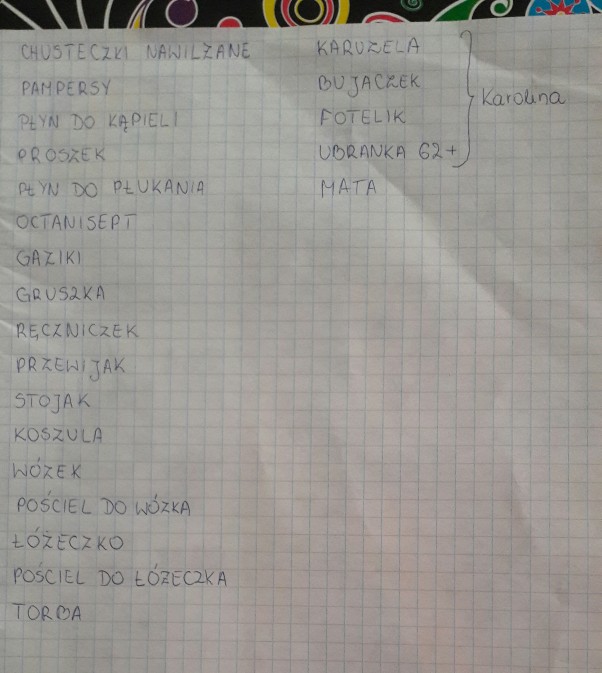 CHUSTECZKI NAWILŻANE
PAMPERSY
PŁYN DO KĄPIELI
PROSZEK
PŁYN DO PŁUKANIA
OCTANISEPT
GAZIKI
GRUSZKA
RĘCZNICZEK
PRZEWIJAK
STOJAK
KOSZULA
WÓZEK
POŚCIEL DO WÓZKA
ŁÓŻECZKO
POŚCIEL DO ŁÓŻECZKA
TORBA
KARUZELA
BUJACZEK
FOTELIK
UBRANKA 62+
MATA
Karolina